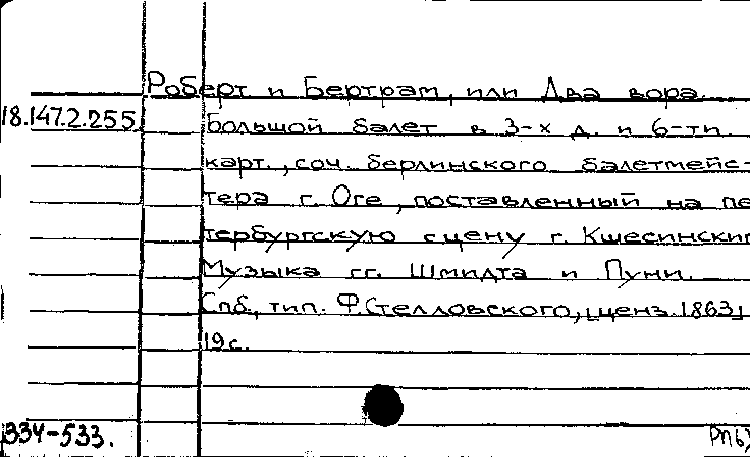 Роберт и Бертрам, или Два вора.
18.147.2.255
Большой балет в 3-х д. и 6-ти.
карт., соч. берлинского балетмейс-
тера г. Оге, поставленный на пе
тербургскую сцену г. Кшесинским
Музыка гг. Шмидта и Пуни.
Спб., тип. Ф.Стелловского, [ценз. 1863]
19с.
334-533.